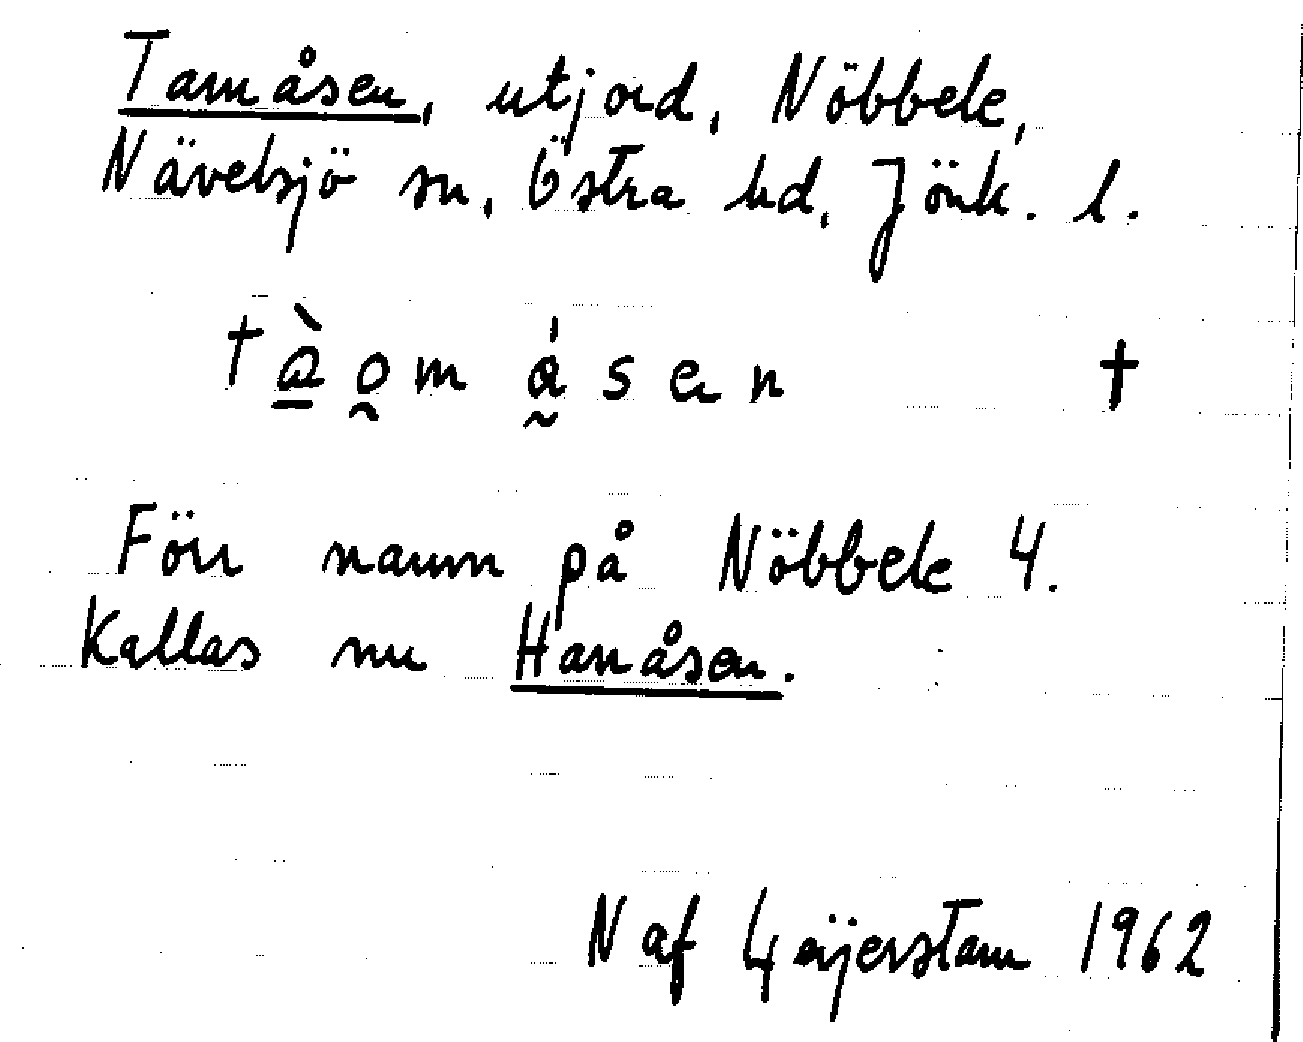 Tamåsen, utjord, Nöbbele,
Nävelsjö sn, Östra hd, Jönk. l.
tàomåsen †
Förr namn på Nöbbele 4.
Kallas nu Hanåsen.
N af Geijerstam 1962